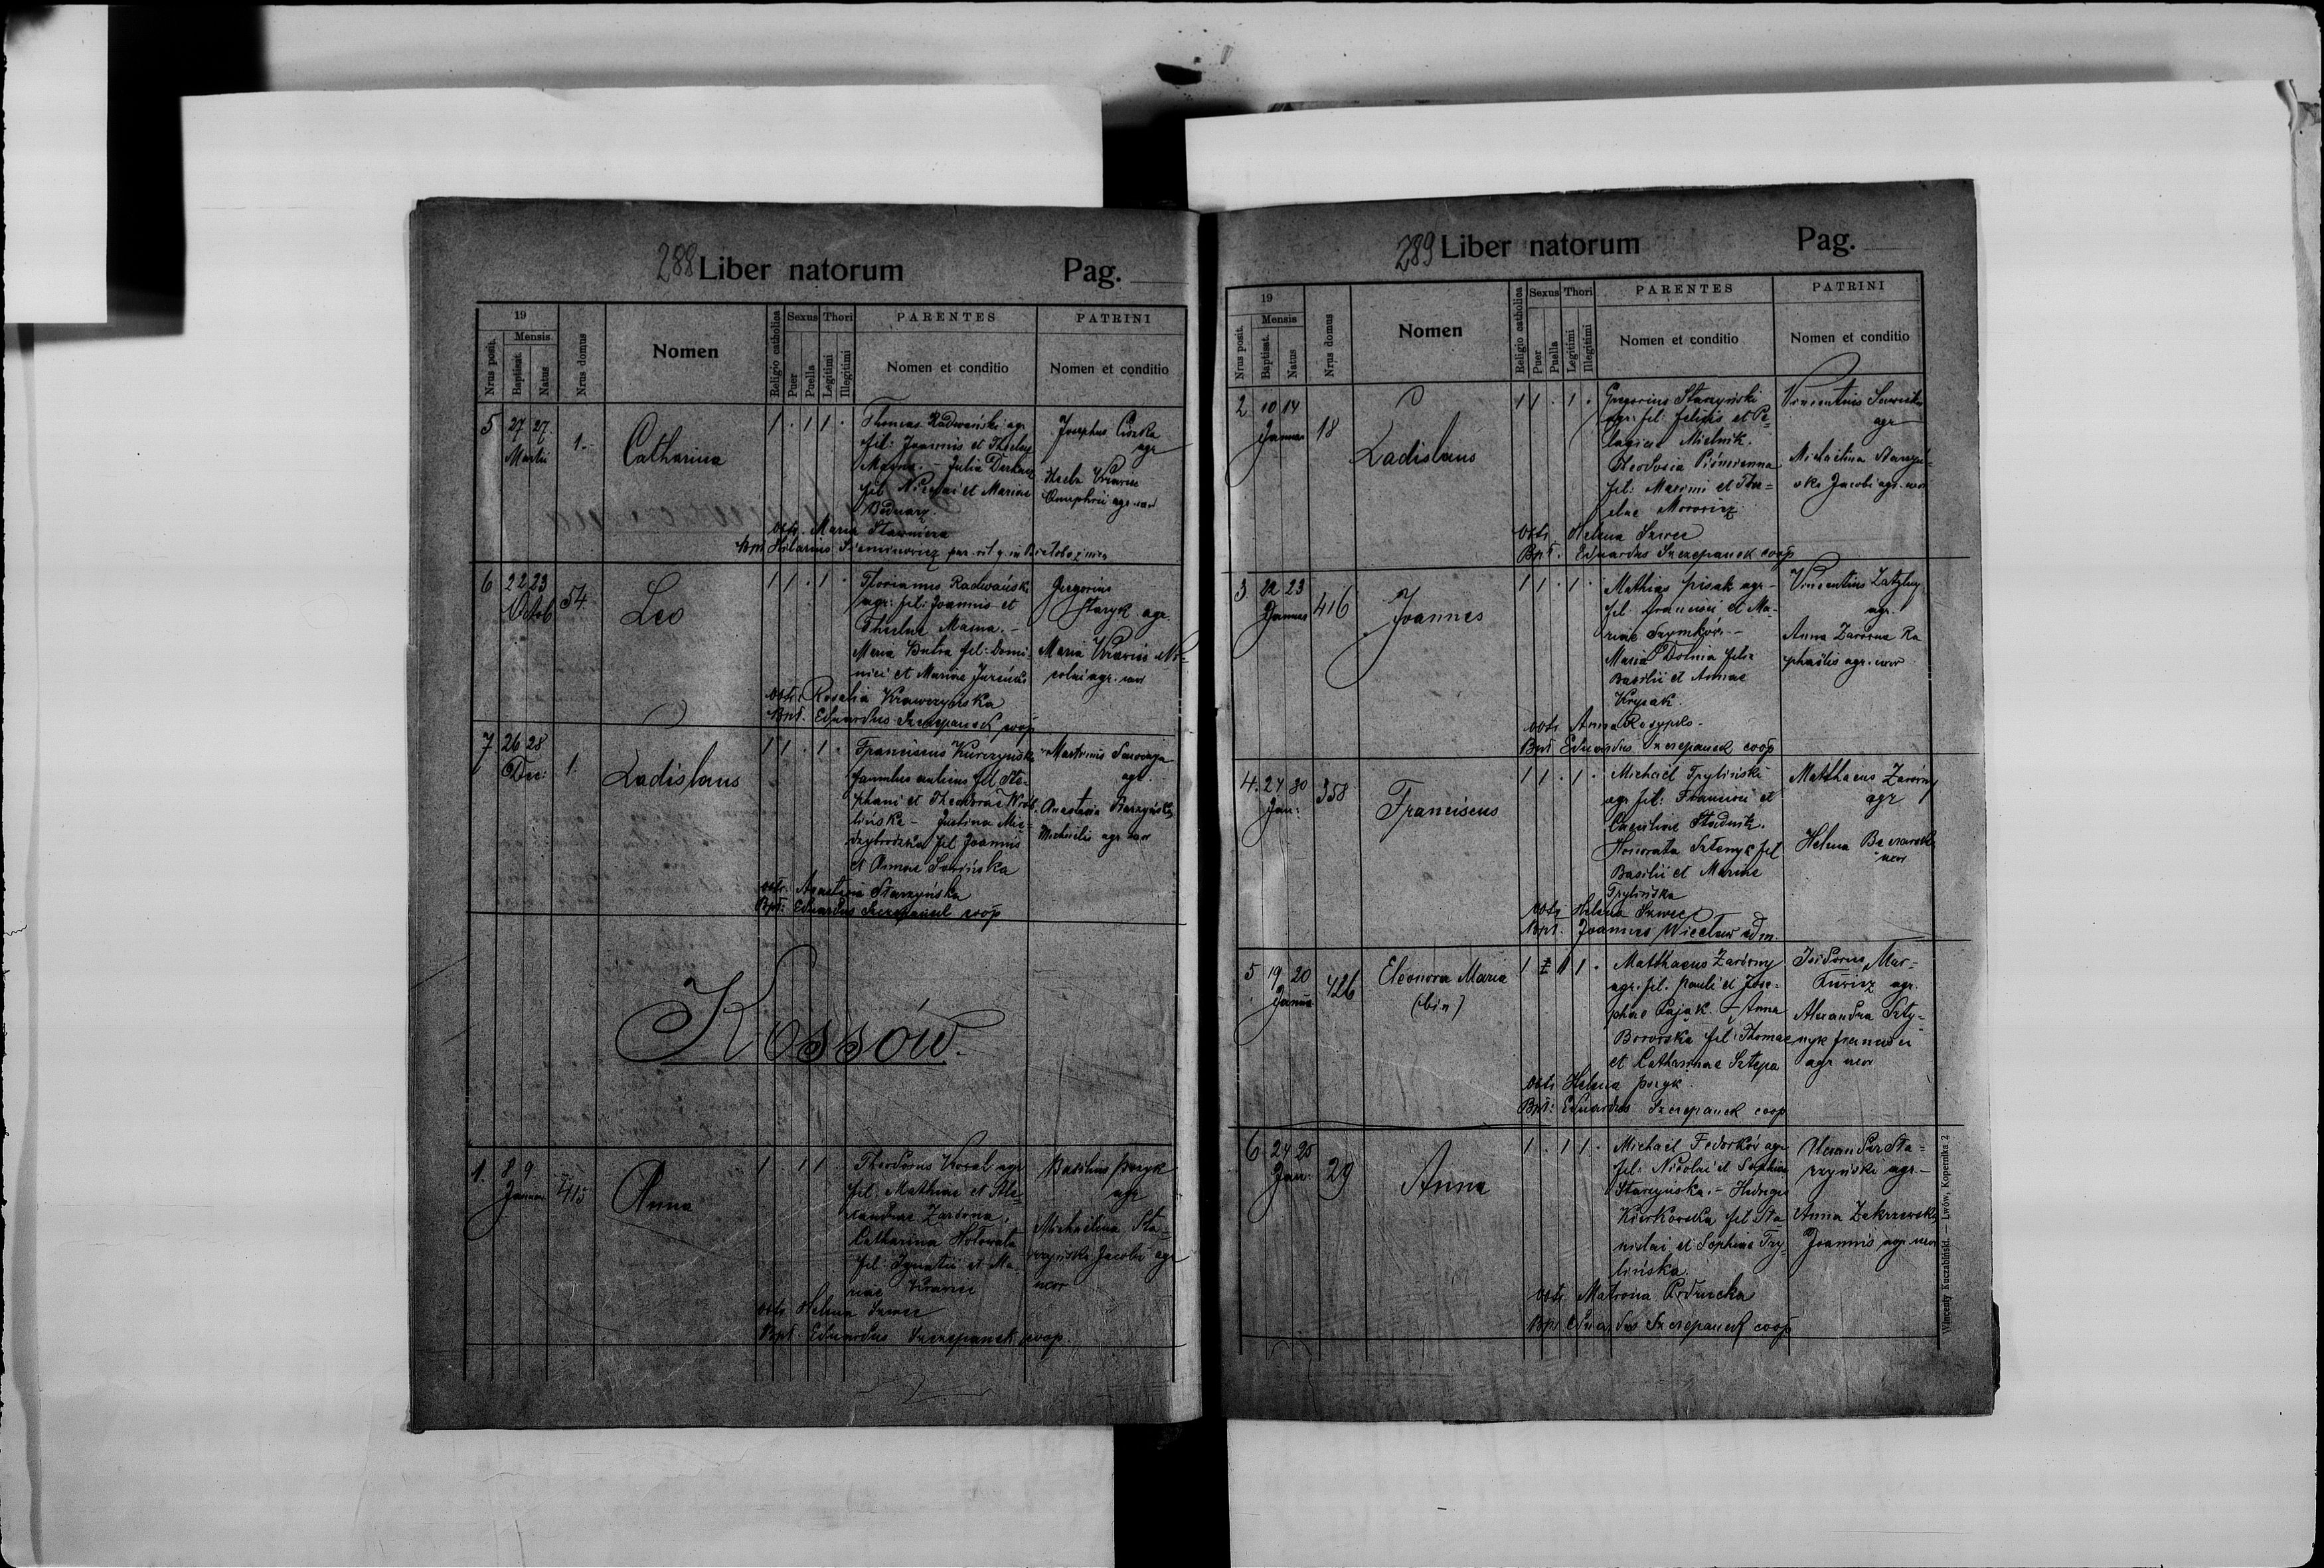 288 Liber natorum Pag.
19
Mensis
Nrus posit.
Baptisat.
Natus
Nrus domus
Nomen
Religio catholica
Sexus
Puer
Puella
Thori
Legitimi
Illegitimi
PARENTES
Nomen et conditio
PATRINI
Nomen et conditio
5 27 27. Martii 1. Catharina 1 . 1 1 .
Thomas Radwański agr
fil: Joannis et Theclae
Mazna. - Julia
fil Nicolai et Mariae
Bednarz.
Josephus
agr
Thecla
Onuphrii agr. uxor
obst. Maria
Bpt. Hilarius par. rit g. in
6 22 23 Octob 54. Leo 1 1 . 1 .
Florianus Radwański
agr: fil: Joannis et
Theclae Mazna. -
Maria Butra fil: Domi-
nici et Mariae
Gregorius
Staryk agr.
Maria Ni-
colai agr. uxor
obst. Rosalia Krawczyńska
Bpt. Eduardus Szczepanek coop
7 26 28 Dec: 1. Ladislaus 1 1 . 1 .
Franciscus Kurczyński
famulus fil Ste-
phani et Theodorae Wrób-
lińska - Justina Mie-
dzybrodzka fil Joannis
et Annae
Martinus
agr.
Anastasia Starzyńska
Michaelis agr uxor
obst. Anastasia Starzyńska
Bpt: Eduardus Szczepanek coop
Kossów.
1. 8 9 Januar 415 Anna 1 . 1 1 .
Theodorus Kowal agr
fil. Mathiae et Ale-
xandrae Zarówna,
Catharina Hołowata
fil: Ignatii et Ma-
riae
Basilius Pozyk
agr
Michaelina Sta-
rzyńska Jacobi agr
uxor
obst. Helena Szwec
Bpt. Eduardus Szczepanek coop.
289 Liber natorum Pag.
19
Mensis
Nrus posit.
Baptisat.
Natus
Nrus domus
Nomen
Religio catholica
Sexus
Puer
Puella
Thori
Legitimi
Illegitimi
PARENTES
Nomen et conditio
PATRINI
Nomen et conditio
2 10 14 Januar 18 Ladislaus 1 1 . 1 .
Gregorius Starzyński
agr. fil: Felicis et Pe-
lagiae Mielnik.
Theodosia
fil: Maximi et The-
clae
Vincentius
agr
Michaelina Starzyń-
ska Jacobi agr. uxor
Obst. Helena Szwec
Bpt. Eduardus Szczepanek coop
3 22 23 Januar 416 Joannes 1 1 . 1 .
Mathias Prisak agr -
fil Francisci et Ma-
riae Szymków. -
Maria Dolnia filia
Basilii et Annae
Krysak.
Vincentius
agr.
Anna Zarówna Ra
phaëlis agr. uxor
obst Anna Rosypko -
Bpt Eduardus Szczepanek coop
4. 27 30 Jan: 358 Franciscus 1 1 . 1 .
Michaël Tryliński
agr. fil: Francisci et
Caeciliae Stadnik.
Honorata fil
Basilii et Mariae
Trylińska
Matthaeus Zarówny
agr
Helena
uxor
Obst Helena Szwec
Bpt. Joannes Wiecław adm.
5 19 20 Januar 426 Eleonora Maria
(bin) 1 1 1 .
Matthaeus Zarówny
agr. fil. Pauli et Jose-
phae Pająk. - Anna
Borowska fil: Thomae
et Catharinae Sztepa
Isidorus Mar-
agr.
Alexandra
agr uxor
Obst Helena Pozyk.
Bpt: Eduardus Szczepanek coop
6 24 25 Jan: 29 Anna 1 . 1 1 .
Michaël Fedorków agr
fil: Nicolai et Sophiae
Starzyńska. - Hedvigis
fil Sta-
nislai et Sophiae Try-
lińska.
Alexander Sta-
rzyński agr. -
Anna Zakrzewska
Joannis agr. uxor
obst. Matrona
Bpt Eduardus Szczepanek coop
Wincenty Kuczabiński. Lwów, Kopernika 2